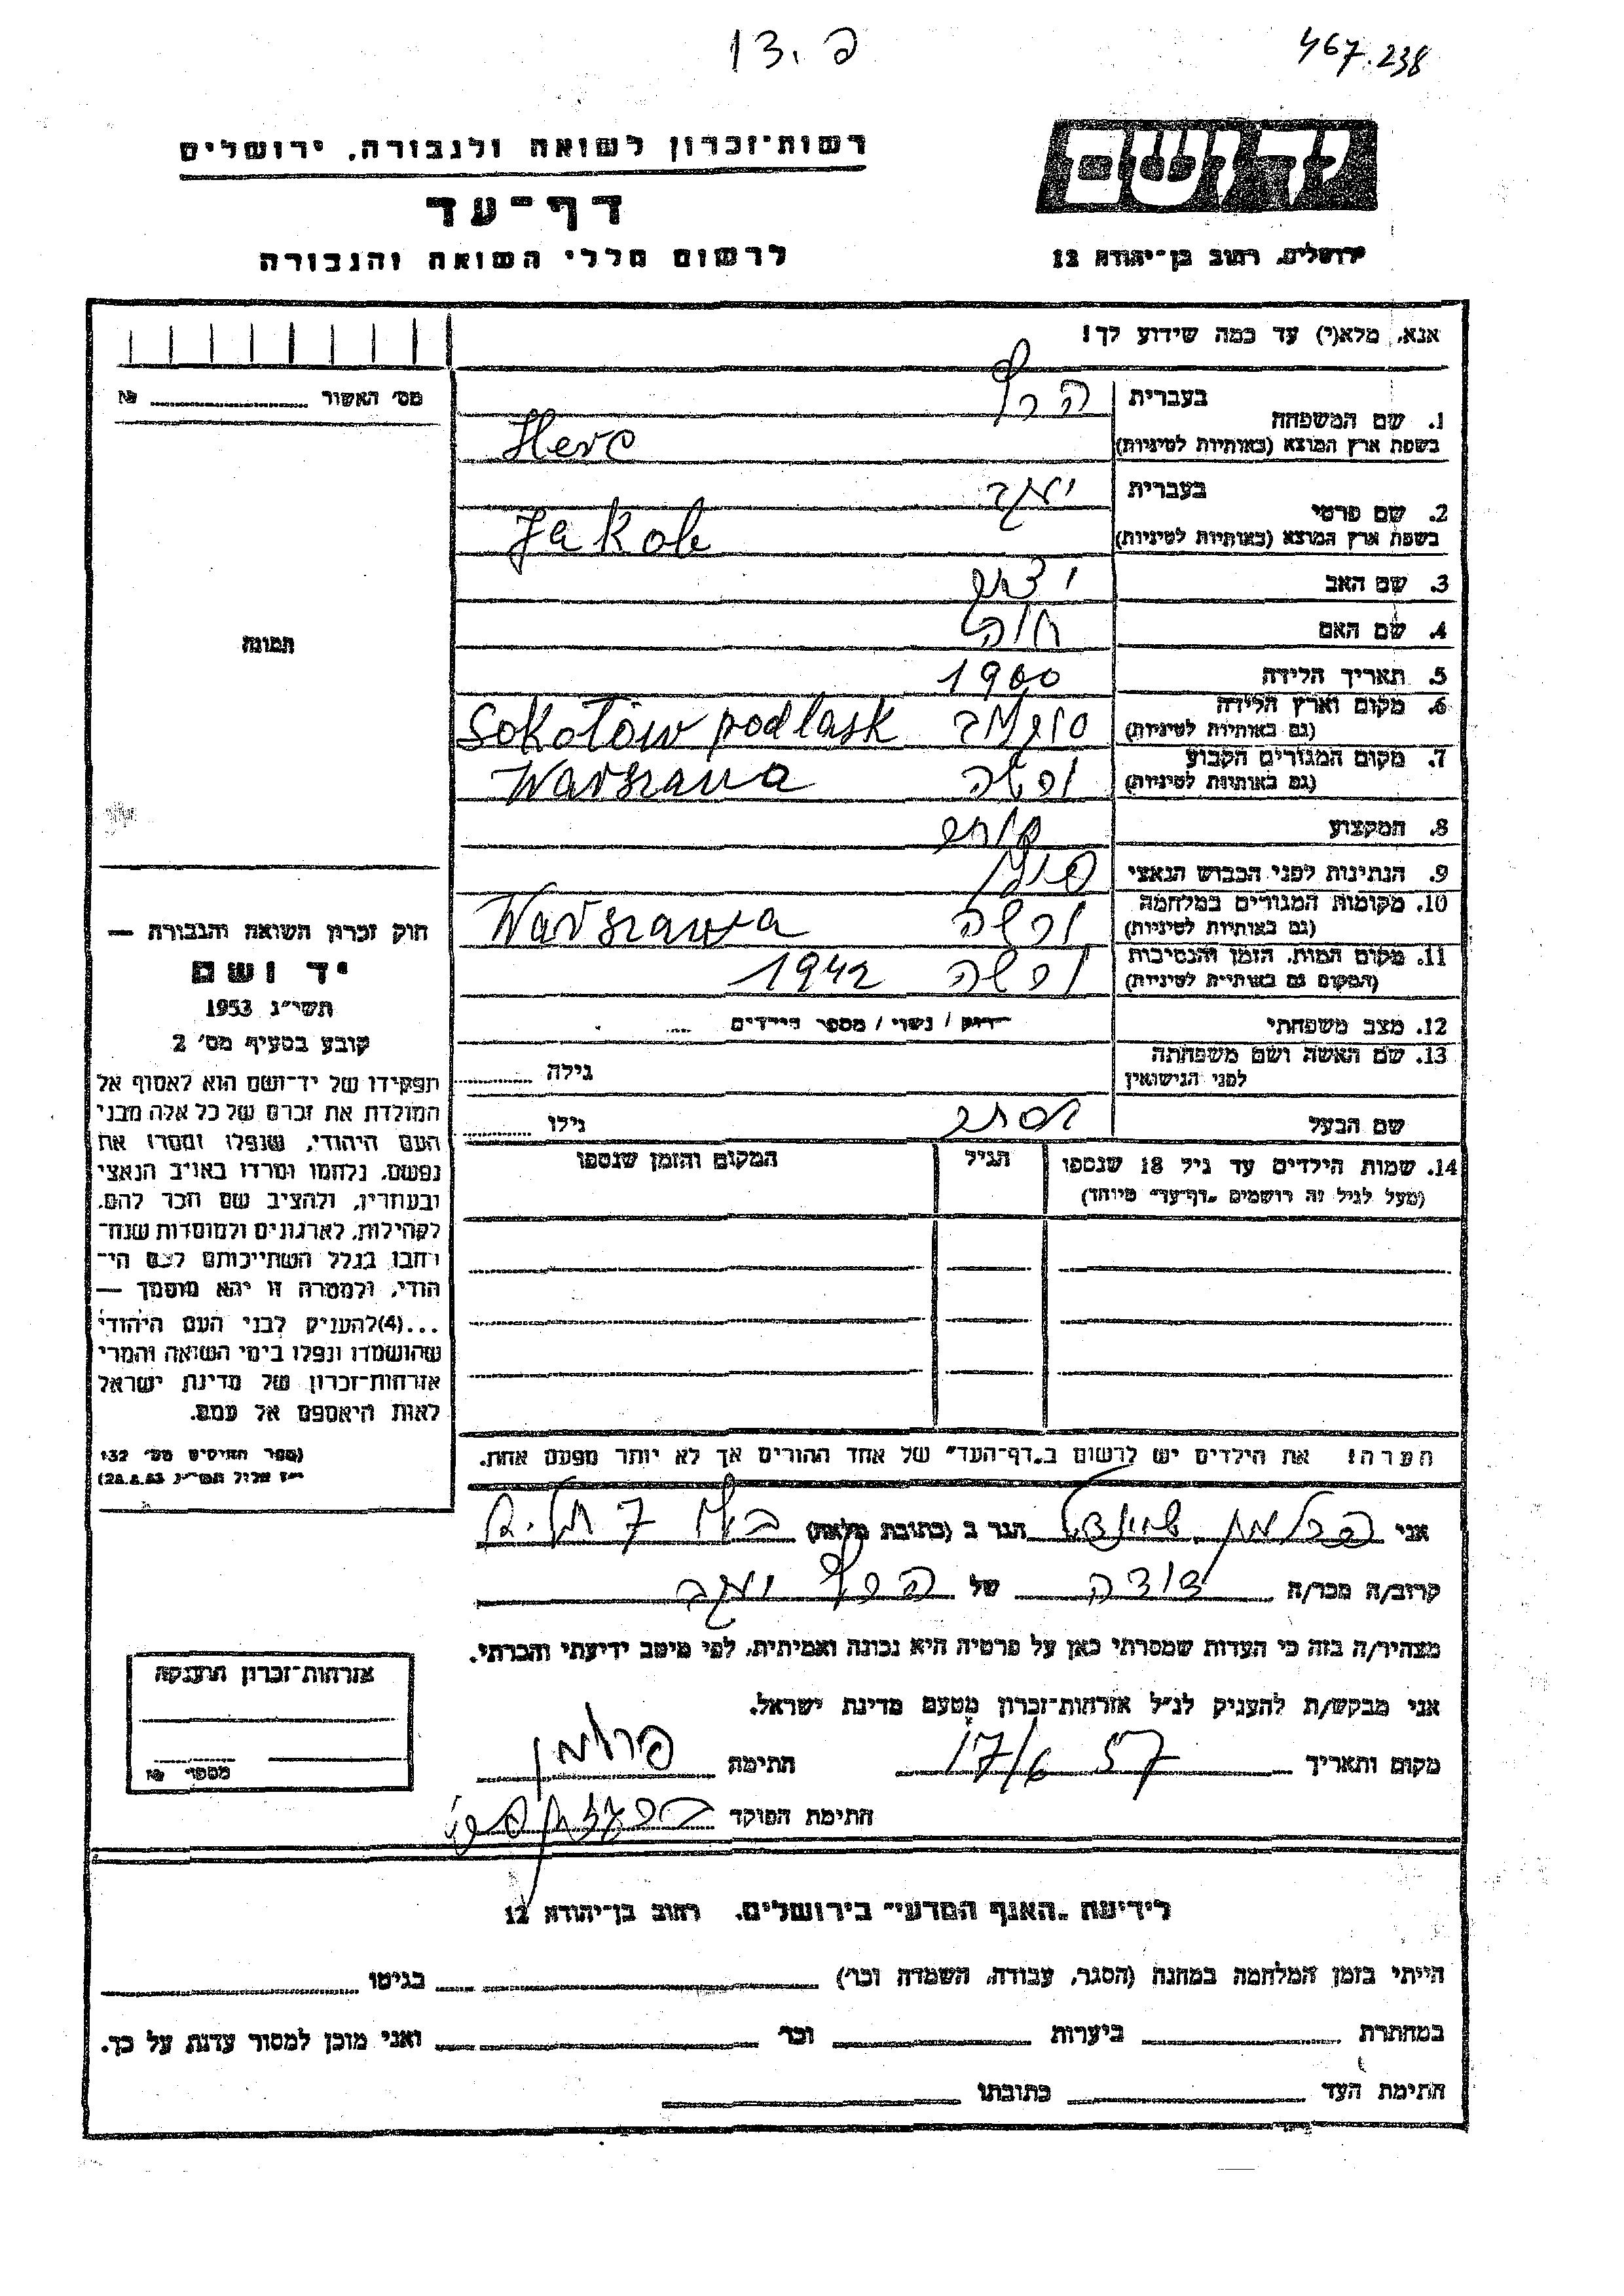 13. פ
467.238
יד ושם
רשות־זכרון לשואה ולגבורה, ירושלים
דף־עד
לרשום חללי השואה והגבורה
ירושלים, רחוב בן־יהודה 12
אנא, מלא(י) עד כמה שידוע לך!
מס׳ האשור № 
1. שם המשפחה
בעברית
הרץ
בשפת ארץ המוצא (באותיות לטיניות)
Herc
2. שם פרטי
בעברית
יעקב
בשפת ארץ המוצא (באותיות לטיניות)
Jakob
3. שם האב
4. שם האם
חוה
5. תאריך הלידה 1900
6. מקום וארץ הלידה
(גם באותיות לטיניות)
Sokołów podlask
7. מקום המגורים הקבוע
(גם באותיות לטיניות)
ורשה Warszawa
8. המקצוע
9. הנתינות לפני הכבוש הנאצי
10. מקומות המגורים במלחמה
(גם באותיות לטיניות)
ורשה Warszawa
11. מקום המות, הזמן והנסיבות
(המקום גם באותיות לטיניות)
ורשה 1942
12. מצב משפחתי רווק / נשוי / מספר הילדים
13. שם האשה ושם משפחתה
לפני הנישואין
גילה
שם הבעל
גילו
14. שמות הילדים עד גיל 18 שנספו
(מעל לגיל זה רושמים "דף־עד" מיוחד)
הגיל
המקום והזמן שנספו
הערה! את הילדים יש לרשום ב"דף־העד" של אחד ההורים אך לא יותר מפעם אחת.
תמונה
חוק זכרון השואה והגבורה —
יד ושם
תשי״ג 1953
קובע בסעיף מס׳ 2
תפקידו של יד־ושם הוא לאסוף אל
המולדת את זכרם של כל אלה מבני
העם היהודי, שנפלו ומסרו את
נפשם, נלחמו ומרדו באויב הנאצי
ובעוזריו, ולהציב שם וזכר להם,
לקהילות, לארגונים ולמוסדות שנח־
רחבו בגלל השתייכותם לעם הי־
הודי, ולמטרה זו יהא מוסמך —
...(4)להעניק לבני העם היהודי
שהושמדו ונפלו בימי השואה והמרי
אזרחות־זכרון של מדינת ישראל
לאות היאספם אל עמם.
(ספר החוקים מס׳ 132
י״ז אלול תשי״ג 28.8.53)
אני הגר ב (כתובת מלאה)
קרוב/ה מכר/ה דודה של הרץ יעקב
מצהיר/ה בזה כי העדות שמסרתי כאן על פרטיה היא נכונה ואמיתית, לפי מיטב ידיעתי והכרתי.
אני מבקש/ת להעניק לנ״ל אזרחות־זכרון מטעם מדינת ישראל.
מקום ותאריך 17/6 57 חתימה
חתימת הפוקד
אזרחות־זכרון הוענקה
מספר №
לידיעת "האגף המדעי" בירושלים, רחוב בן־יהודה 12
הייתי בזמן המלחמה במחנה (הסגר, עבודה, השמדה וכו׳) בגיטו
במחתרת ביערות וכו׳ ואני מוכן למסור עדות על כך.
חתימת העד כתובתו